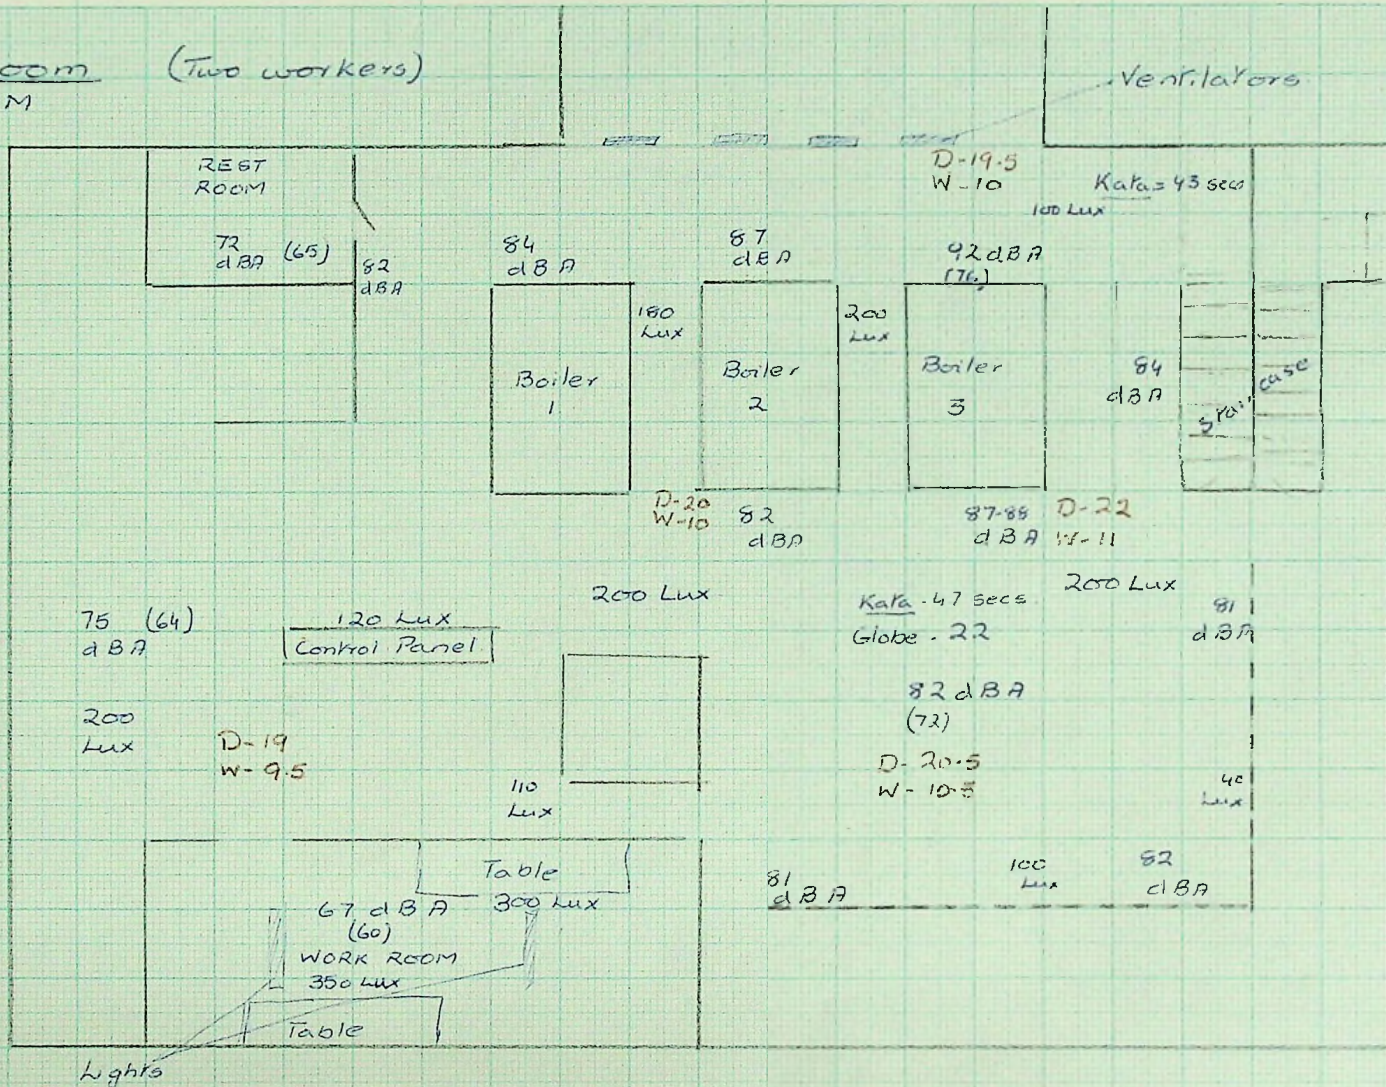 oom (Two workers)
M
Ventilators
REST
ROOM
72
dBA (65)
82
dBA
84
dBA
87
dBA
D-19.5
W-10
Kata = 43 secs
100 Lux
92 dBA
(76)
180
Lux
200
Lux
Boiler
1
Boiler
2
Boiler
3
84
dBA
Stair case
D-20
W-10
82
dBA
87-88
dBA
D-22
W-11
200 Lux
Kata - 47 secs
Globe - 22
200 Lux
81
dBA
75 (64)
dBA
120 Lux
Control Panel
82 dBA
(72)
200
Lux
D-19
W-9.5
D-20.5
W-10.5
110
Lux
40
Lux
Table
300 Lux
67 dBA
(60)
WORK ROOM
350 Lux
Table
81
dBA
100
Lux
82
dBA
Lights